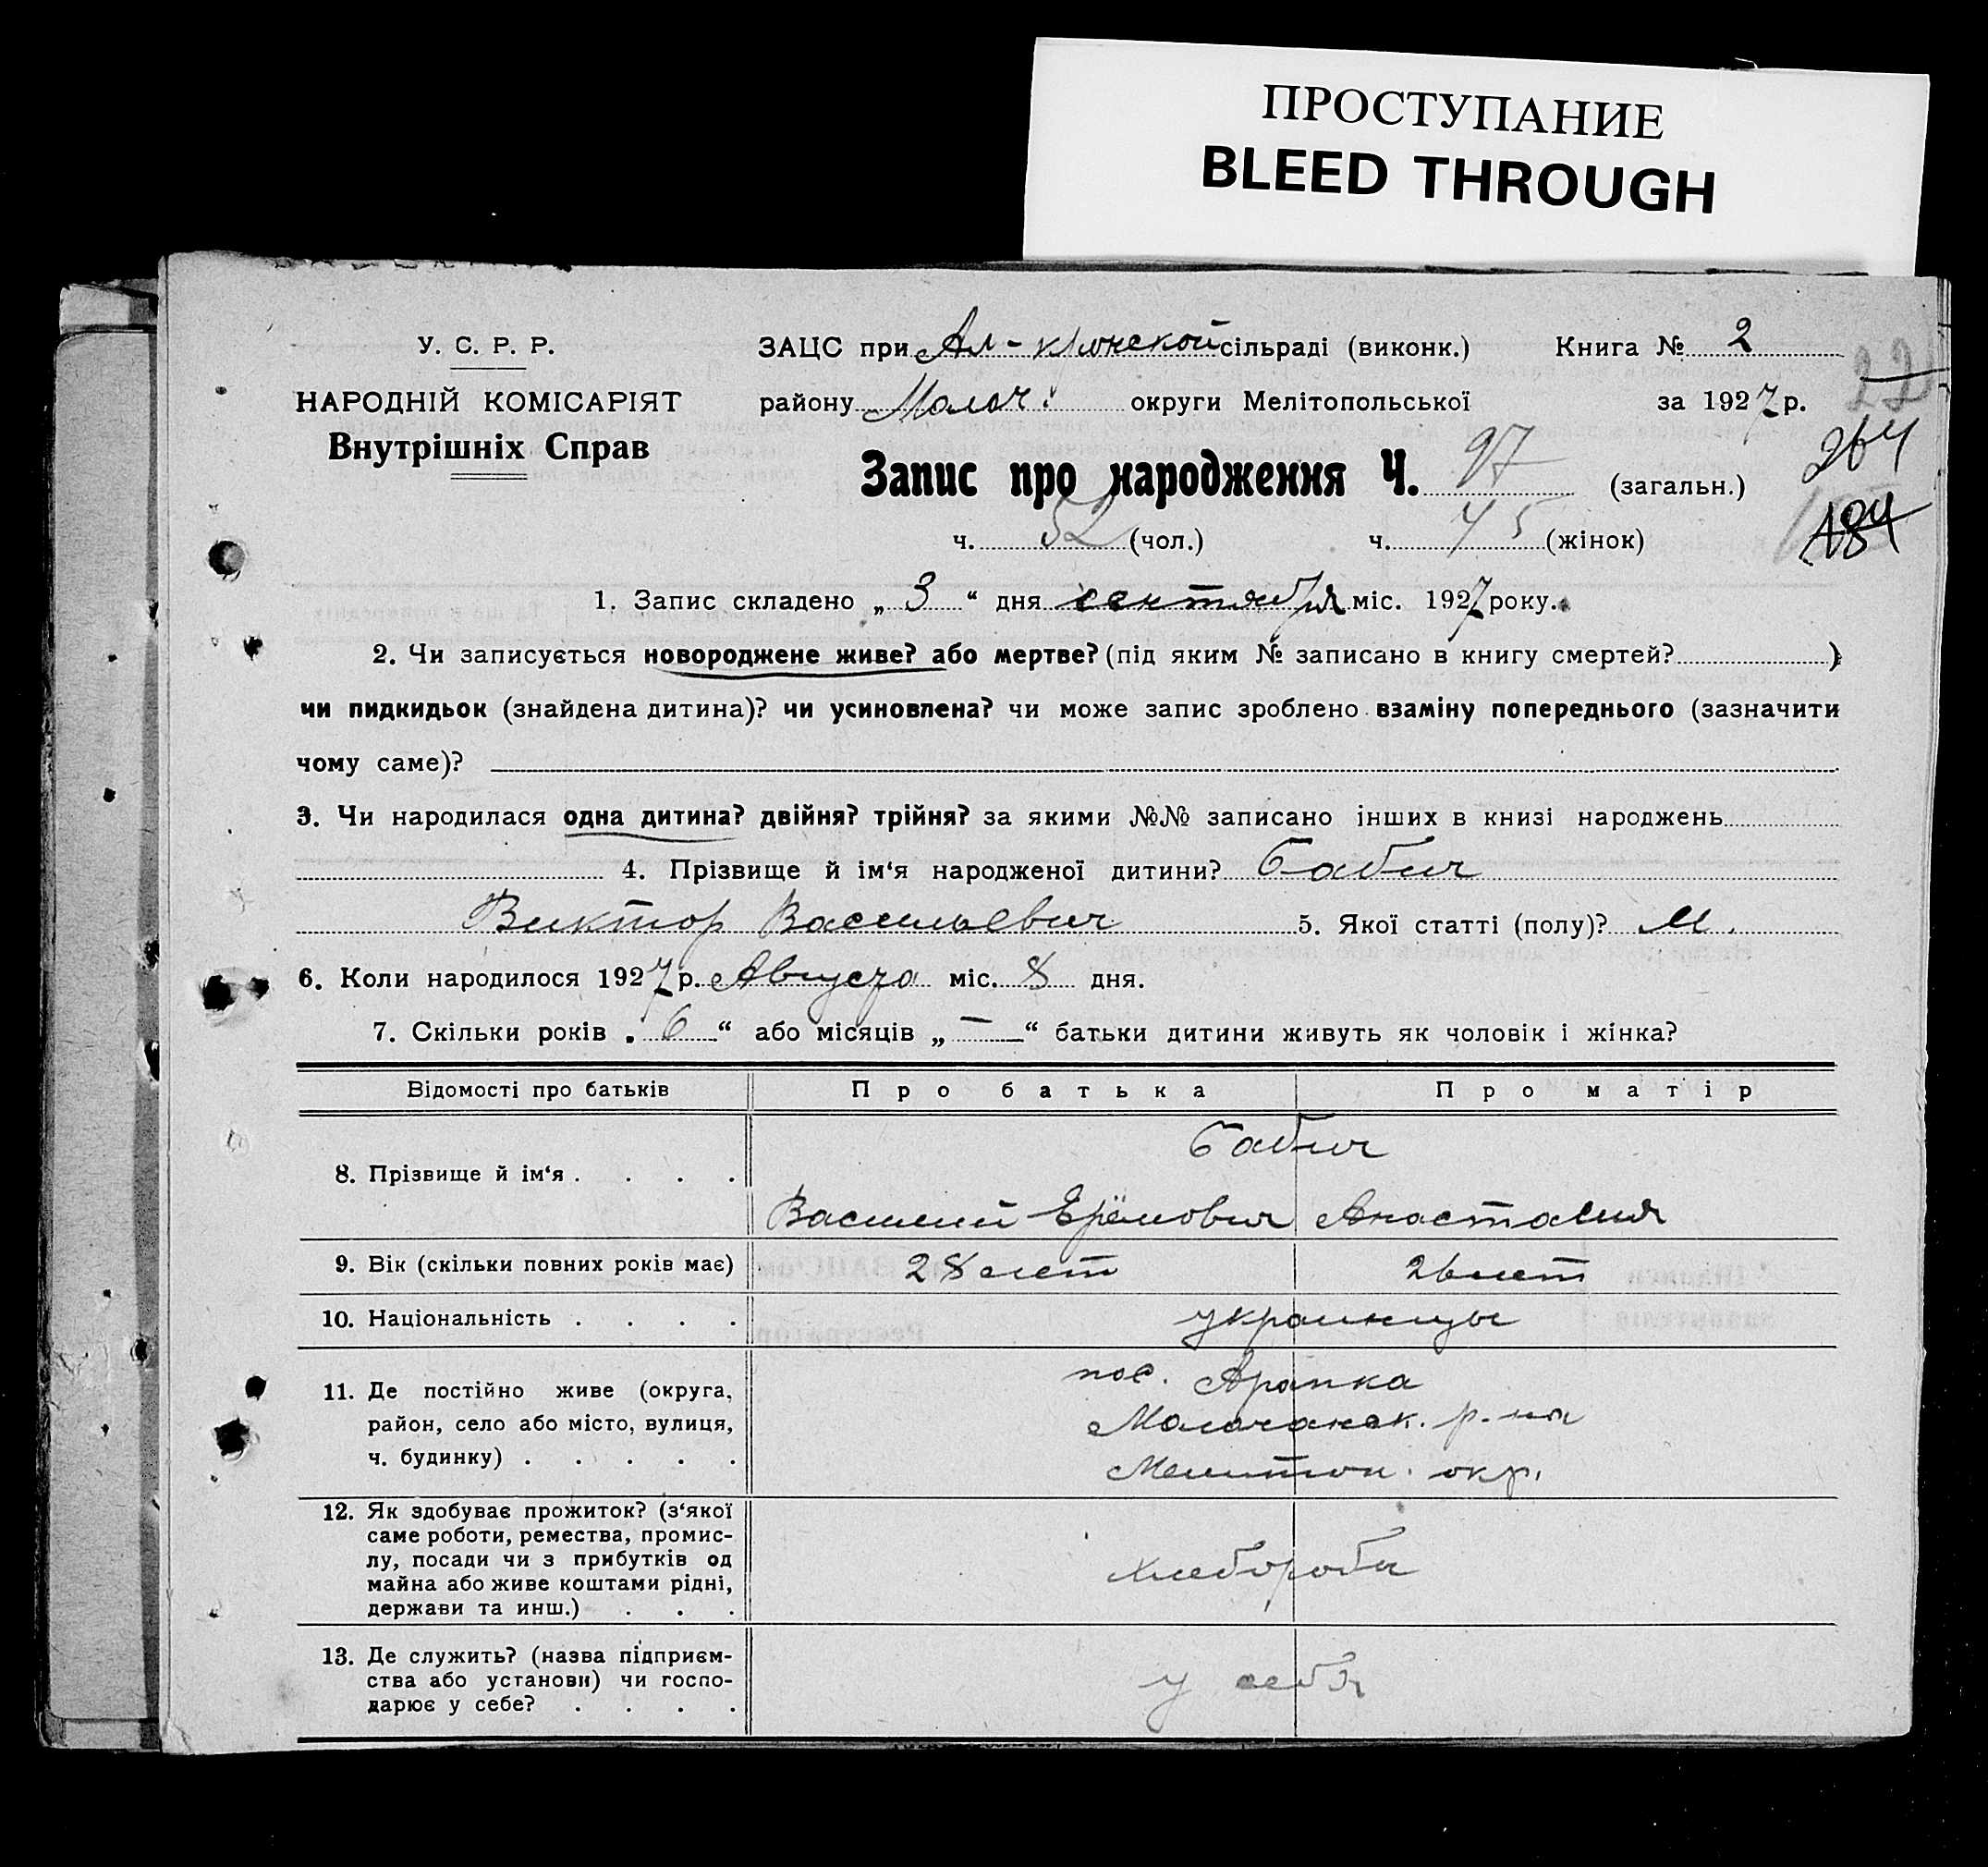 ПРОСТУПАНИЕ
BLEED THROUGH
У. С. Р. Р.
НАРОДНІЙ КОМІСАРІЯТ
Внутрішніх Справ
ЗАЦС при Ал-кронской сільраді (виконк.) Книга № 2
22
району Молоч. округи Мелітопольської за 1927 р.
264
Запис про народження Ч. 97 (загальн.)
184
ч. 52 (чол.) ч. 45 (жінок)
1. Запис складено „ 3 “ дня сентября міс. 1927 року.
2. Чи записується новороджене живе? або мертве? (під яким № записано в книгу смертей? )
чи пидкидьок (знайдена дитина)? чи усиновлена? чи може запис зроблено взаміну попереднього (зазначити
чому саме)?
3. Чи народилася одна дитина? двійня? трійня? за якими №№ записано інших в книзі народжень
4. Прізвище й ім‘я народженої дитини? Бабич
Виктор Васильевич 5. Якої статті (полу)? М.
6. Коли народилося 1927 р. Августа міс. 8 дня.
7. Скільки років „ 6 “ або місяців „ — “ батьки дитини живуть як чоловік і жінка?
Відомості про батьків Про батька Про матір
8. Прізвище й ім‘я . . . . Бабич
Василий Ерёмович Анастасия
9. Вік (скільки повних років має) 28 лет 26 лет
10. Національність . . . . украинцы
11. Де постійно живе (округа, район, село або місто, вулиця, ч. будинку) . . . . . пос. Арапка
Молочанск. р-на
Мелитоп. окр.
12. Як здобуває прожиток? (з‘якої
саме роботи, ремества, промис-
лу, посади чи з прибутків од
майна або живе коштами рідні,
держави та инш.) . . . хлеборобы
13. Де служить? (назва підприєм-
ства або установи) чи госпо-
дарює у себе? . . . . у себя